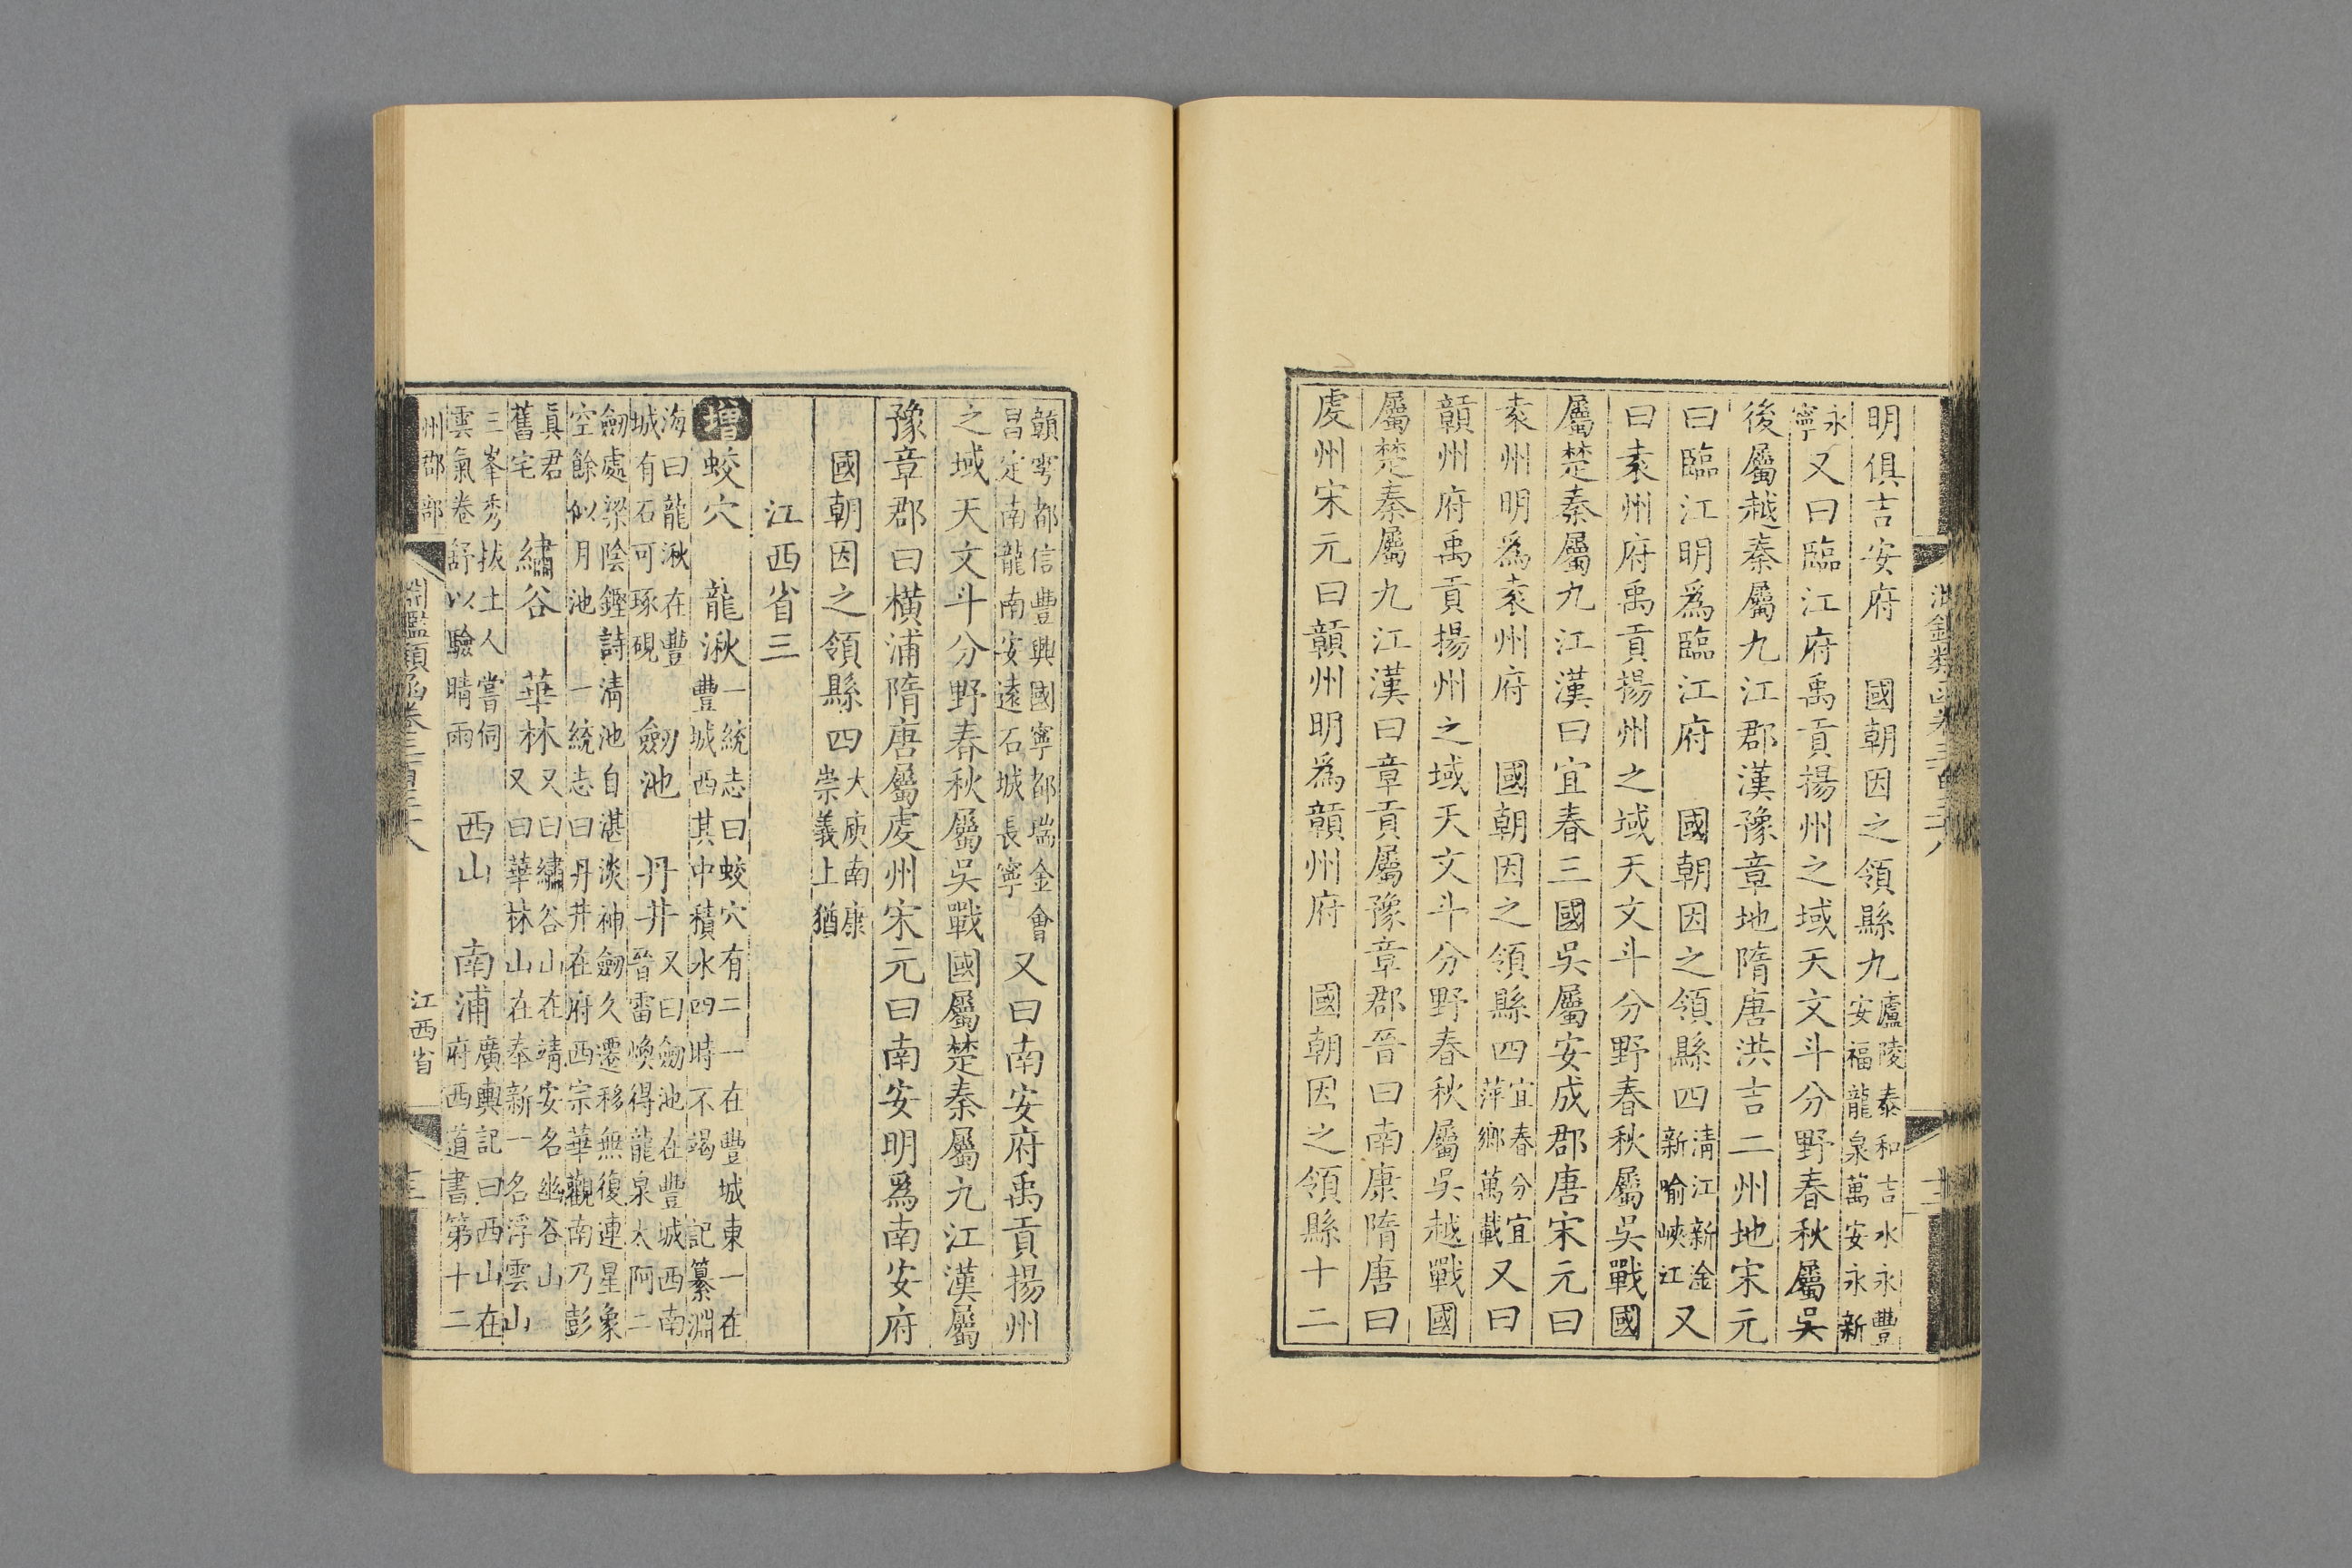 明俱吉安府　國朝因之領縣九廬陵泰和吉水永豐安福龍泉萬安永新
永寧又曰臨江府禹貢揚州之域天文斗分野春秋屬吳
後屬越秦屬九江郡漢豫章地隋唐洪吉二州地宋元
曰臨江明爲臨江府　國朝因之領縣四清江新淦新喻峽江又
曰袁州府禹貢揚州之域天文斗分野春秋屬吳戰國
屬楚秦屬九江漢曰宜春三國吳屬安成郡唐宋元曰
袁州明爲袁州府　國朝因之領縣四宜春分宜萍鄉萬載又曰
贛州府禹貢揚州之域天文斗分野春秋屬吳越戰國
屬楚秦屬九江漢曰章貢屬豫章郡晉曰南康隋唐曰
虔州宋元曰贛州明爲贛州府　國朝因之領縣十二
贛雩都信豐興國寧都瑞金會昌定南龍南安遠石城長寧又曰南安府禹貢揚州
之域天文斗分野春秋屬吳戰國屬楚秦屬九江漢屬
豫章郡曰橫浦隋唐屬虔州宋元曰南安明爲南安府
國朝因之領縣四大庾南康崇義上猶
江西省三
增蛟穴　龍湫一統志曰蛟穴有二一在豐城東一在豐城西其中積水四時不竭　記纂淵
海曰龍湫在豐城有石可琢硯　劒池　丹井又曰劒池在豐城西南晉雷煥得龍泉太阿二
劒處梁陰鏗詩清池自湛淡神劒久遷移無復連星象空餘似月池　一統志曰丹井在府西宗華觀南乃彭
眞君舊宅　繡谷　華林又曰繡谷山在靖安名幽谷山又曰華林山在奉新一名浮雲山
三峯秀拔土人嘗伺雲氣卷舒以驗晴雨　西山　南浦廣輿記曰西山在府西道書第十二
州郡部　淵鑑類函卷三百三十八　江西省　十三